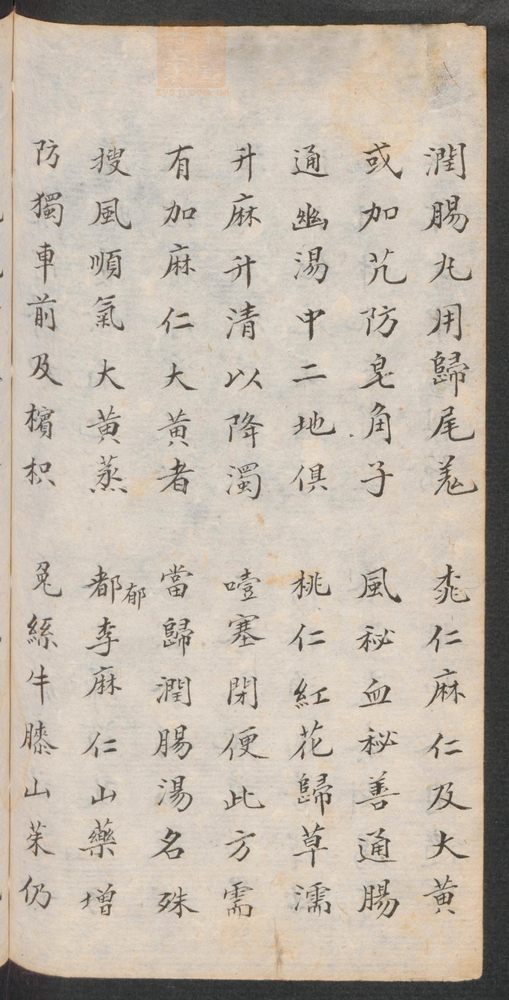 潤腸丸用歸尾羗　桃仁麻仁及大黄
或加艽防皂角子　風秘血秘善通腸
通幽湯中二地俱　桃仁紅花歸草濡
升麻升清以降濁　噎塞閉便此方需
有加麻仁大黄者　當歸潤腸湯名殊
搜風順氣大黄蒸　都李麻仁山藥增
郁
防獨車前及檳枳　兔絲牛膝山茱仍